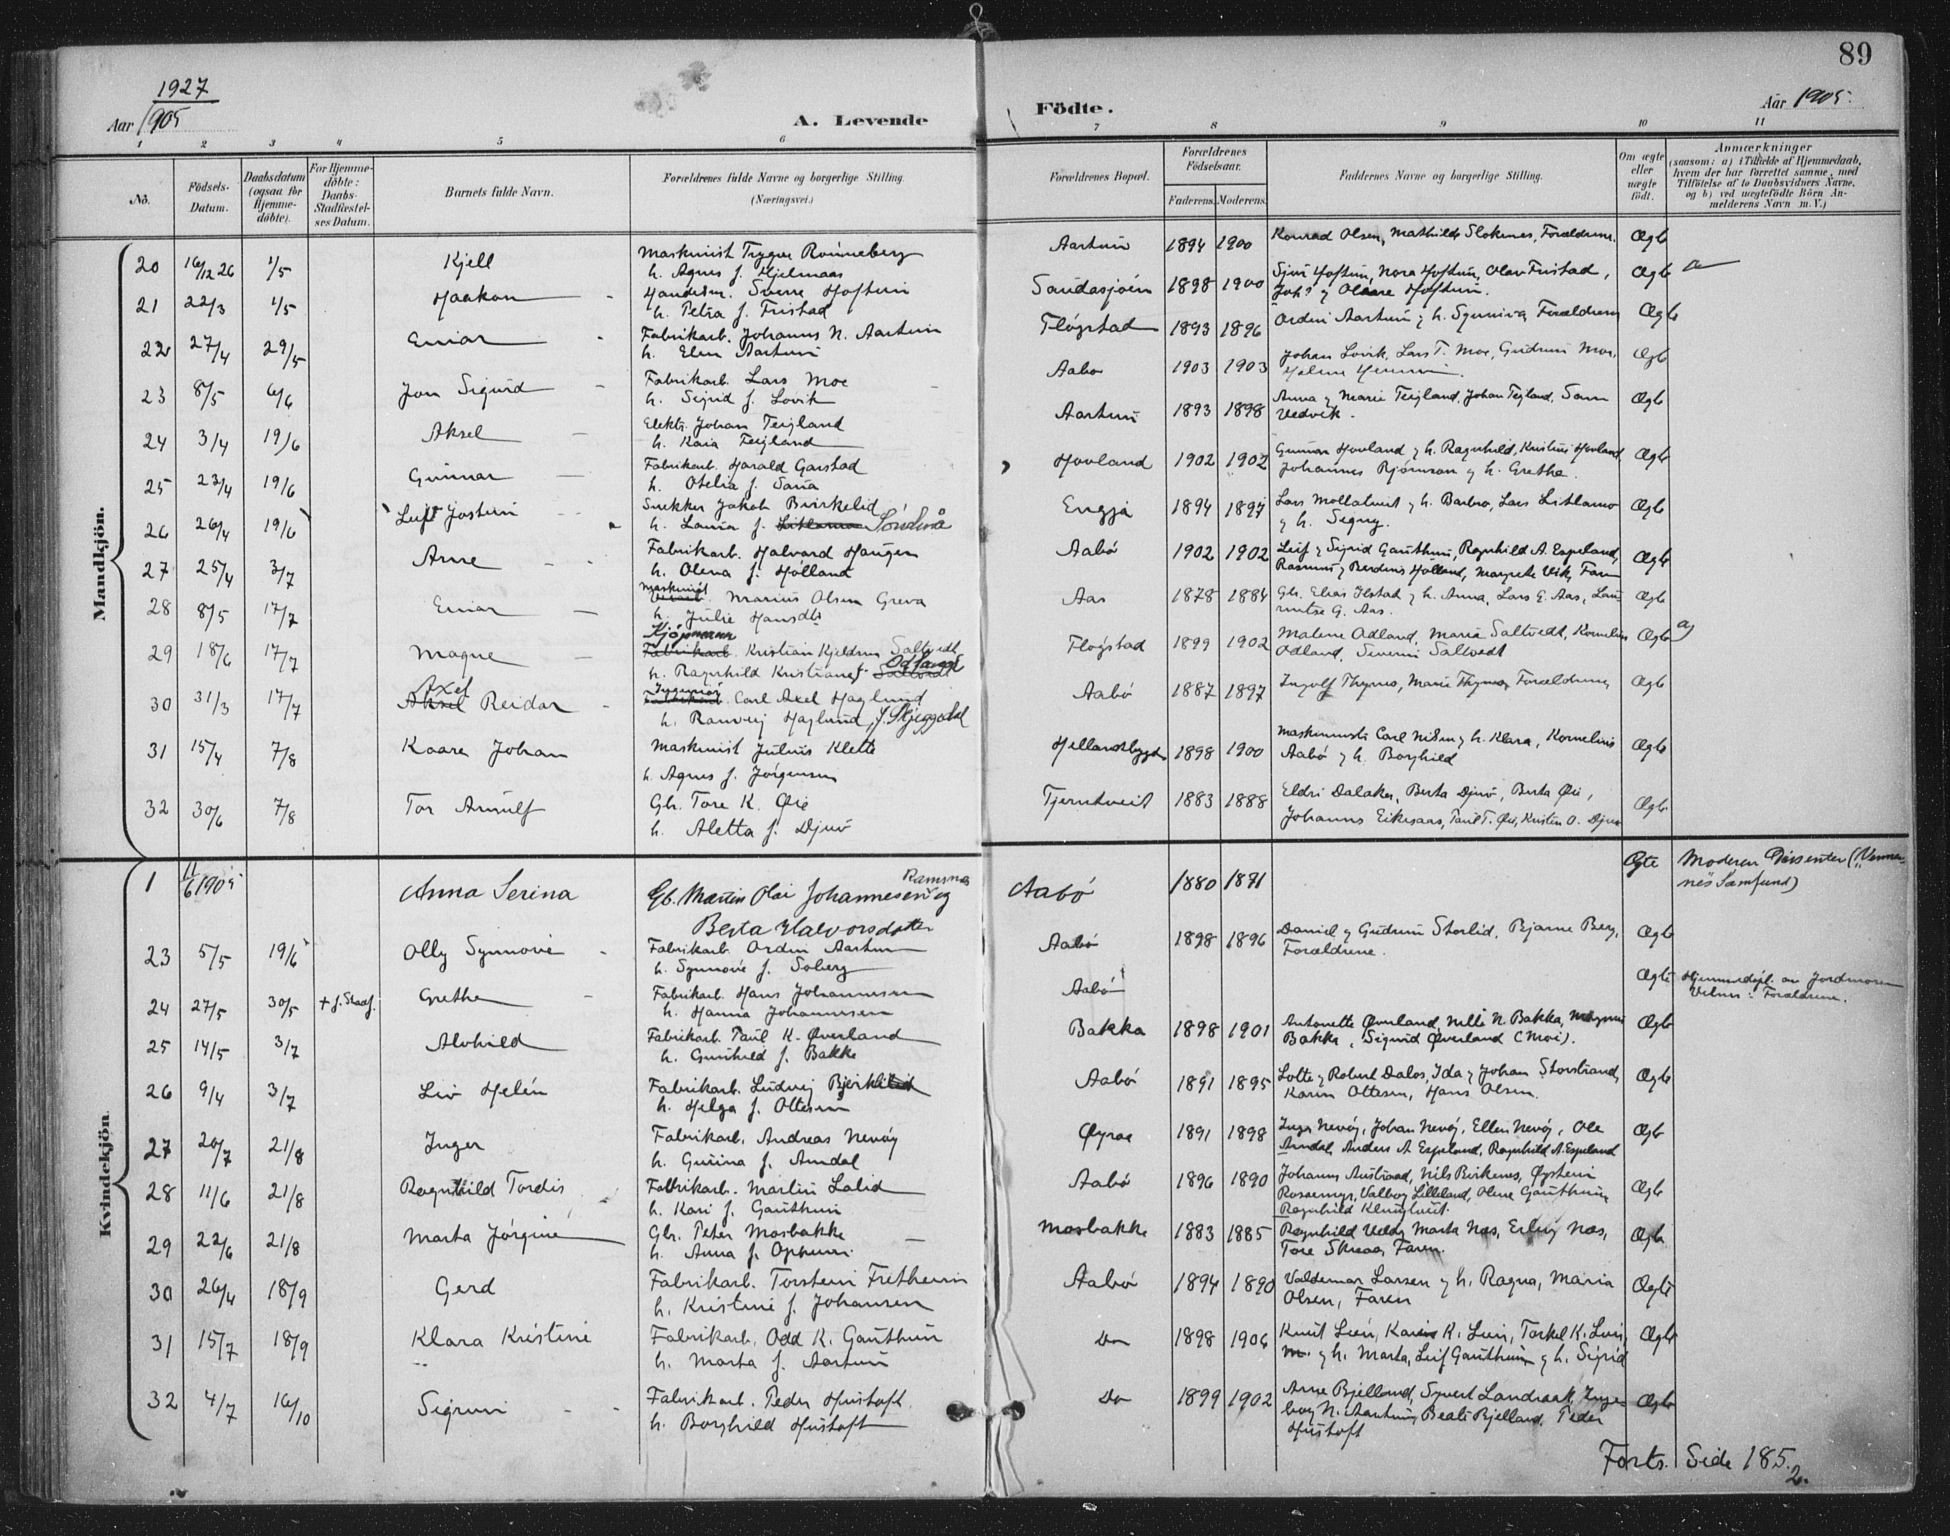 89
1927
Aar 1905
A. Levende
Födte.
Aar 1905.
1 2 3 4 5 6 7 8 9 10 11
No.
Födsels-Datum.
Daabsdatum (ogsaa for Hjemme-döbte).
For Hjemme-döbte: Daabs-Stadfæstel-ses Datum.
Barnets fulde Navn.
Forældrenes fulde Navne og borgerlige Stilling. (Næringsvei.)
Forældrenes Bopæl.
Forældrenes Födselsaar.
Faderens. Moderens.
Faddernes Navne og borgerlige Stilling.
Om ægte eller uægte födt.
Anmærkninger
(saasom: a) i Tilfælde af Hjemmedaab, hvem der har forrettet samme, med Tilföielse af to Daabsvidners Navne, og b) ved uægtefödte Börn Anmelderens Navn m. V.)
Mandkjön.
20 16/12 26 1/5 Kjell Maskinist Trygve Rønneberg Aartun 1894 1900 Konrad Olsen, Mathilde Slokenes, Forældrene. Ægte
h. Agnes f. Hjelmaas
21 22/3 1/5 Haakon Handelsm. Sverre Hoftun Saudasjøen 1898 1900 Sjur Hoftun, Nora Hoftun, Olav Fristad, Ægte
h. Petra f. Fristad Joh. og Hoftun.
22 27/4 29/5 Einar Fabrikarb. Johannes N. Aartun Fløgstad 1893 1896 Ordin Aartun og h. Synniva, Forældrene Ægte
h. Elen Aartun
23 8/5 6/6 Jon Sigurd Fabrikarb. Lars Moe Aabø 1903 1903 Johan Lovik, Lars T. Moe, Gudrun Moe, Ægte
h. Sigrid f. Lovik
24 3/4 19/6 Aksel Elektr. Johan Teigland Aartun 1893 1898 Anna og Marie Teigland, Johan Teigland, Vedvik. Ægte
h. Kaia Teigland
25 23/4 19/6 Gunnar Fabrikarb. Harald Garstad Hovland 1902 1902 Gunnar Hovland og h. Ragnhild, Kristine Hovland, Ægte
h. Otelia f. Johannes Bjørnson og h. Gretha.
26 26/4 19/6 Leif Jostein Snekker Jakob Birkelid Engja 1894 1897 Lars Mollatveit og h. Barbro, Lars Litlamo Ægte
h. Laura f. og h. Signy.
27 25/4 3/7 Arne Fabrikarb. Halvard Haugen Aabø 1902 1902 Leif og Sigrid Gauthun, Ragnhild A. Espeland, Ægte
h. Olena f. Hølland Rasmus og Berdines Hølland, Margrete Vik, Faren
28 8/5 17/7 Einar Maskinist Marius Olsen Greva Aas 1878 1884 Gb. Elias Ilstad og h. Anna, Lars G. Aas, Ægte
h. Julie Hansdtr G. Aas.
29 18/6 17/7 Magne Kjøpmann Fabrikarb. Kristian Kjeldsen Saltvedt Fløgstad 1899 1902 Malene Odland, Maria Saltvedt, Kornelius Ægte
h. Ragnhild Kristiane f. Odland Odland, Severin Saltvedt
30 31/3 17/7 Axel Aksel Reidar Ingeniør Carl Axel Haglund Aabø 1887 1897 Ingolf Thynes, Marie Thynes, Forældrene Ægte
h. Ranveig Haglund, f. Skjeggedal
31 15/4 7/8 Kaare Johan Maskinist Julius Klette Hellandsbygd 1898 1900 Maskinmester Carl Nilsen og h. Klara, Kornelius Ægte
h. Agnes f. Jørgensen Aabø og h. Borghild
32 30/6 7/8 Tor Arnulf Gb. Tore K. Øie Tjerntveit 1883 1888 Eldri Dalaker, Berta Djuv, Berta Øie, Ægte
h. Aletta f. Djuv Johannes Eikesaas, Paul T. Øie, Kristen O. Djuv
Kvindekjön.
1 11/6 1905 Anna Serina Gb. Martin Olai Johannesen Ramsnes og Aabø 1880 1881 Ægte Moderen Dissenter ("Vennenes Samfund)
Berta Halvorsdatter
23 5/5 19/6 Olly Synnøve Fabrikarb. Orden Aartun Aabø 1898 1896 Daniel og Gudrun Storlid, Bjarne Berg, Ægte
h. Synnøve f. Soberg Forældrene.
24 27/5 30/5 + f. Stadf. Grethe Fabrikarb. Hans Johannessen Aabø Ægte Hjemmedøpt av Jordmoren
h. Hanna Johannesen Forældrene.
25 14/5 3/7 Alvhild Fabrikarb. Paul K. Øverland Bakka 1898 1901 Antonette Øverland, Nelle N. Bakka, Magnus Ægte
h. Gunhild f. Bakke Bakka, Sigurd Øverland (Moi).
26 9/4 3/7 Liv Helén Fabrikarb. Ludvig Aabø 1891 1895 Lotte og Robert Dalos, Ida og Johan Storstrand, Ægte
h. Helga f. Ottesen Karin Ottesen, Hans Olsen.
27 20/7 21/8 Inger Fabrikarb. Andreas Nevøy Øyrae 1891 1898 Inga Nevøy, Johan Nevøy, Ellen Nevøy, Ole Ægte
h. Gurina f. Amdal Amdal, Anders A Espeland, Ragnhild A. Espeland
28 11/6 21/8 Ragnhild Tordis Fabrikarb. Martin Lalid Aabø 1896 1890 Johannes Austraad, Nils Birkenes, Øystein Ægte
h. Kari f. Gauthun Rossemyr, Valborg Lilleland, Olene Gauthun, Ragnhild
29 22/6 21/8 Marta Jørgine Gb. Peter Mosbakke Mosbakke 1883 1885 Ragnhild Marta Næs, Erling Næs, Ægte
h. Anna f. Tore Skraa, Faren.
30 26/4 18/9 Gerd Fabrikarb. Torstein Fretheim Aabø 1894 1890 Valdemar Larsen og h. Ragna, Maria Ægte
h. Kristine f. Johansen Olsen, Faren
31 15/7 18/9 Klara Kristine Fabrikarb. Odd K. Gauthun Do 1898 1906 Knut Lien, Karin K. Lien, Torkel K. Lien, Ægte
h. Marta f. Aartun og h. Marta, Leif Gauthun og h. Sigrid
32 4/7 16/10 Sigrun Fabrikarb. Peder Hustoft Do 1899 1902 Arne Bjelland, Syvert Landraak, Inge- Ægte
h. Borghild Hustoft borg N. Aartun, Beate Bjelland, Peder
Hustoft
Forts. Side 185.